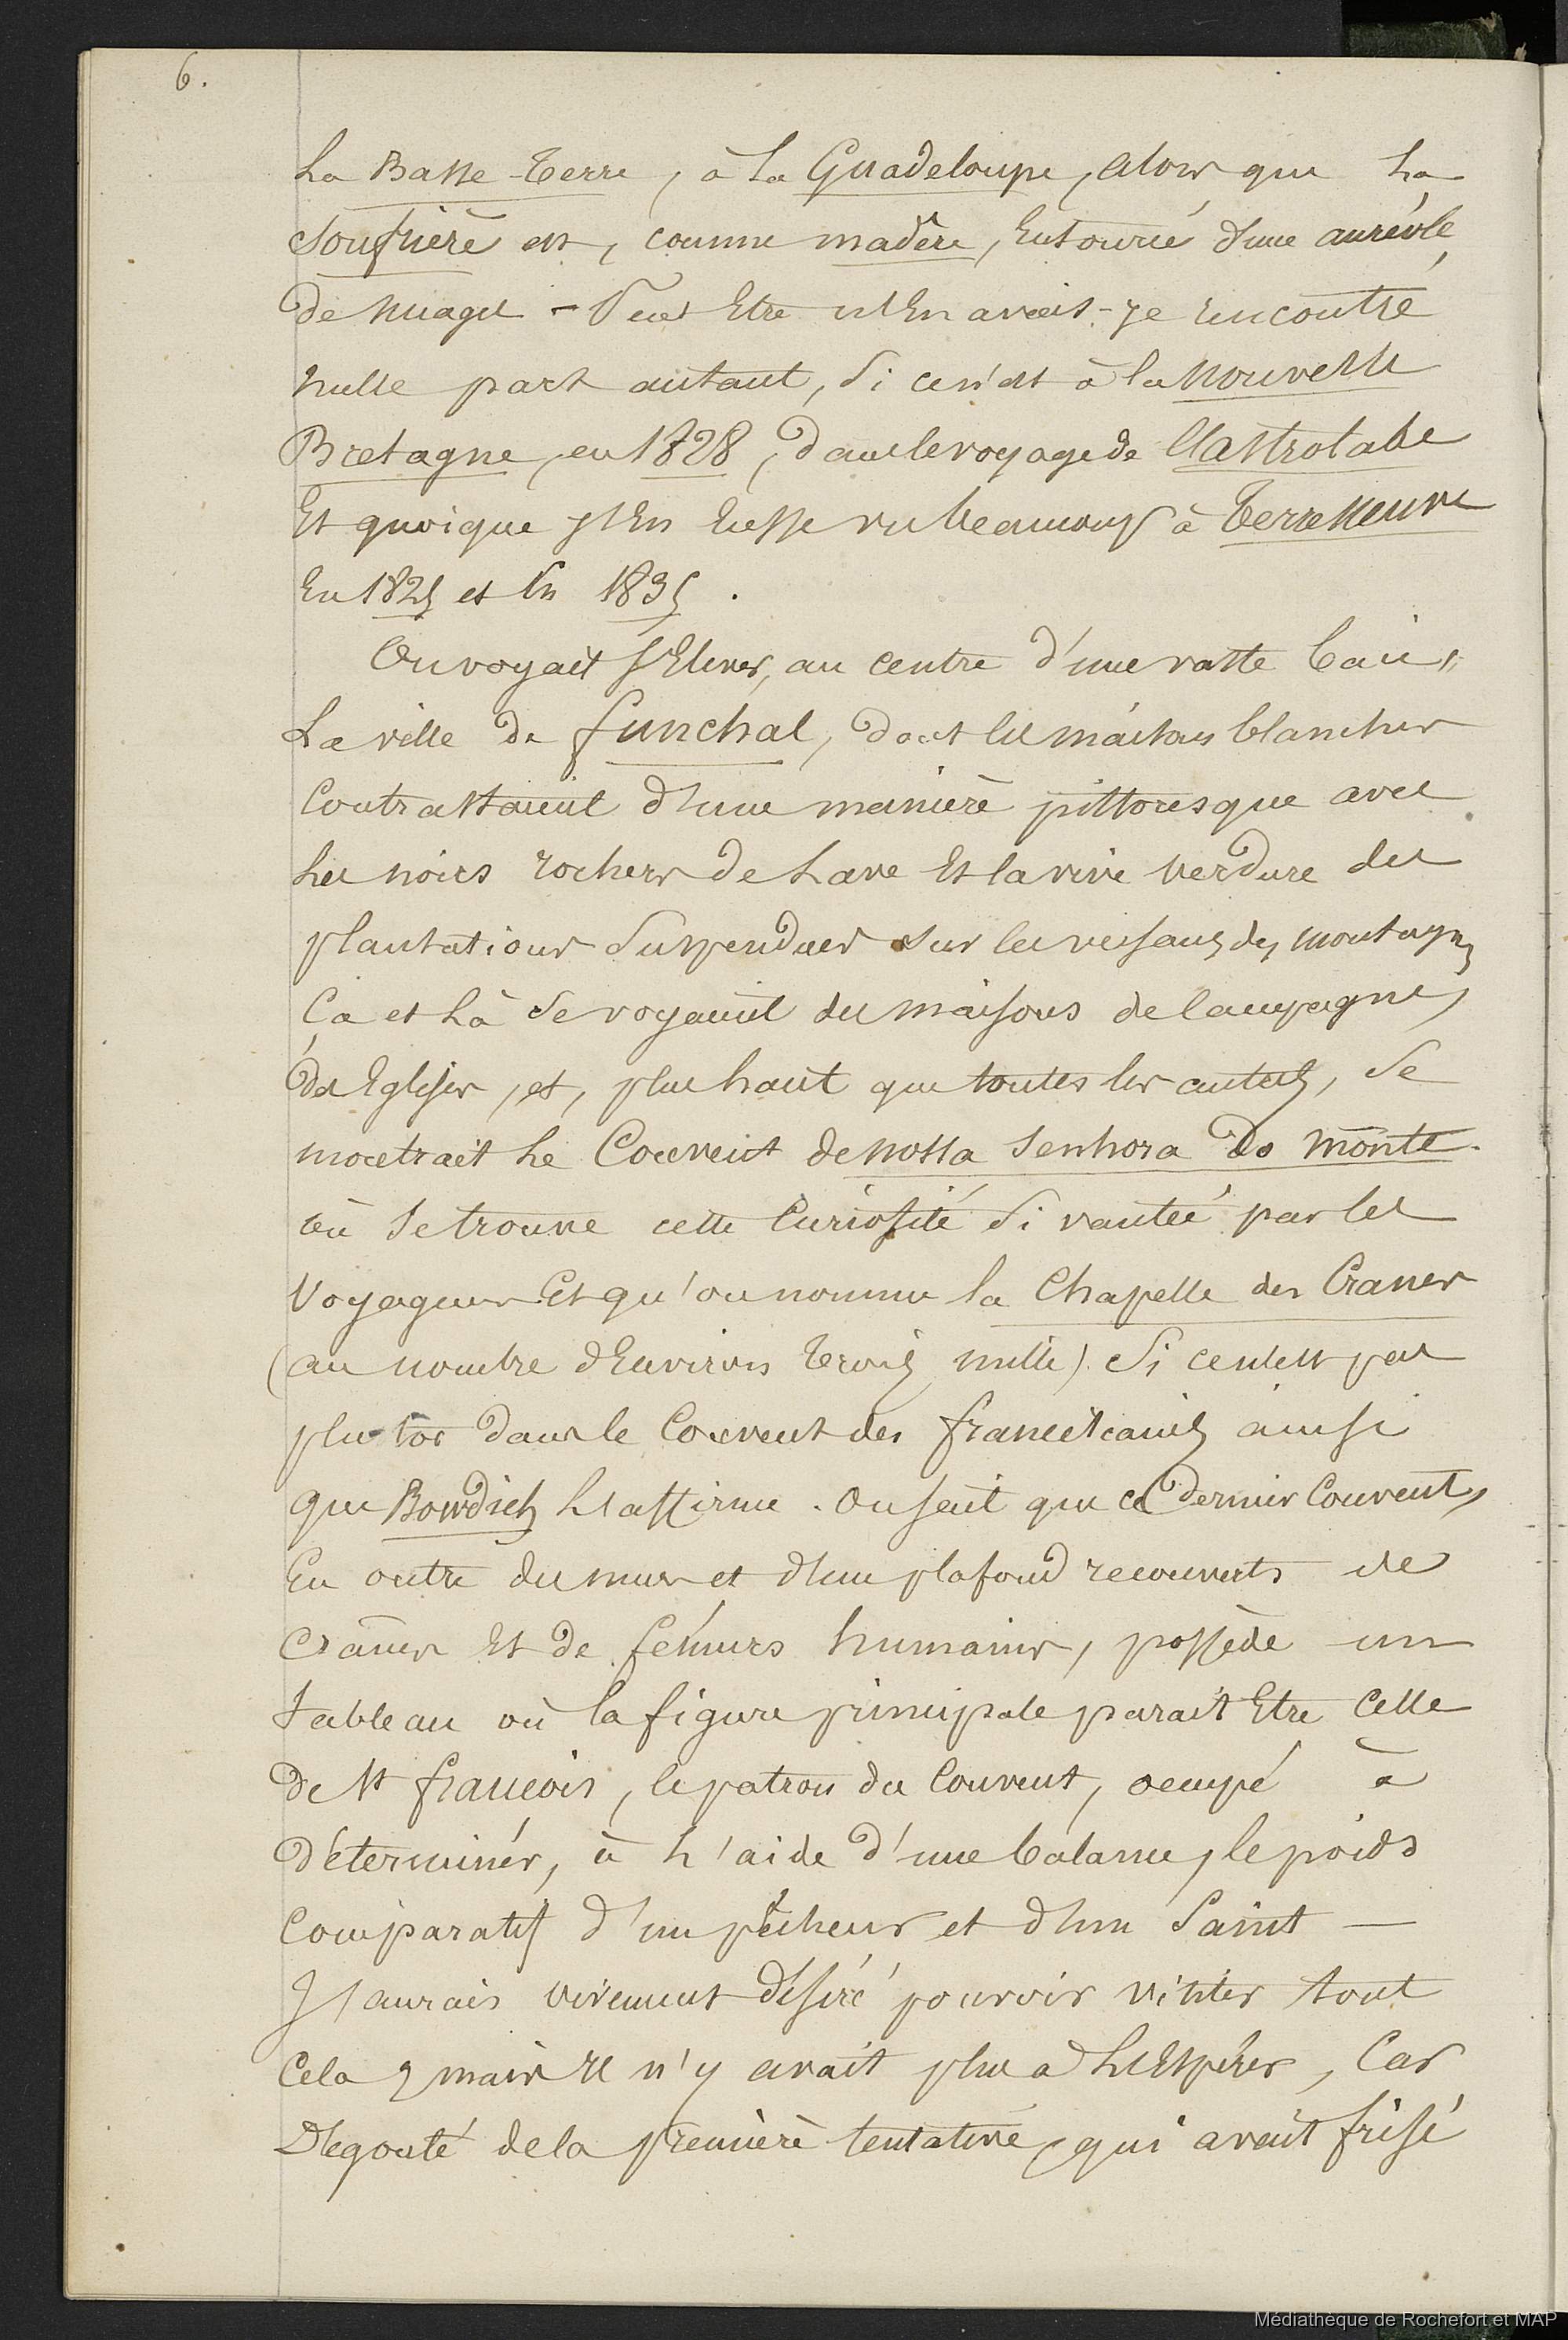 6.
La Basse-Terre, à la Guadeloupe, alors que la
Soufrière est, comme madère, Entourée d'une auréole
de nuages - Peut Etre n'En avais-je rencontré
nulle part autant, si ce n'est à la Nouvelle
Bretagne, en 1828, dans le voyage de l'Astrolabe
Et quoique j'En Eusse vu beaucoup à Terre Neuve
En 1825 et En 1835.
On voyait s'Elever, au centre d'une vaste baie,
La ville de funchal, dont les maisons blanches
Contrastaient d'une manière pittoresque avec
les noirs rochers de Lave Et la vive verdure des
plantations Suspendues sur les versans des montagnes
Ca et Là Se voyaient des maisons de Campagne,
des Eglises, et, plus haut que toutes les autres, Se
montrait le Couvent de nossa senhora do monte.
où Se trouve cette Curiosité Si vantée par les
Voyageurs Et qu'on nomme la Chapelle des Cranes
(au nombre d'Environ Trois mille). Si ce n'est pas
plutôt dans le Couvent des franciscains ainsi
que Bowdich L'affirme. On sait que ce dernier Couvent,
En outre des murs et d'un plafond recouverts de
Crânes Et de fémurs humains, possède un
tableau où la figure principale parait Etre Celle
de St françois, le patron du Couvent, occupé à
déterminer, à l'aide d'une balance, le poids
Comparatif d'un pécheur et d'un Saint —
J'aurais vivement désiré pouvoir visiter tout
Cela, mais Il n'y avait plus a L'Espérer, Car
Dégouté de la première tentative, qui avait frisé
Médiathèque de Rochefort et MAP